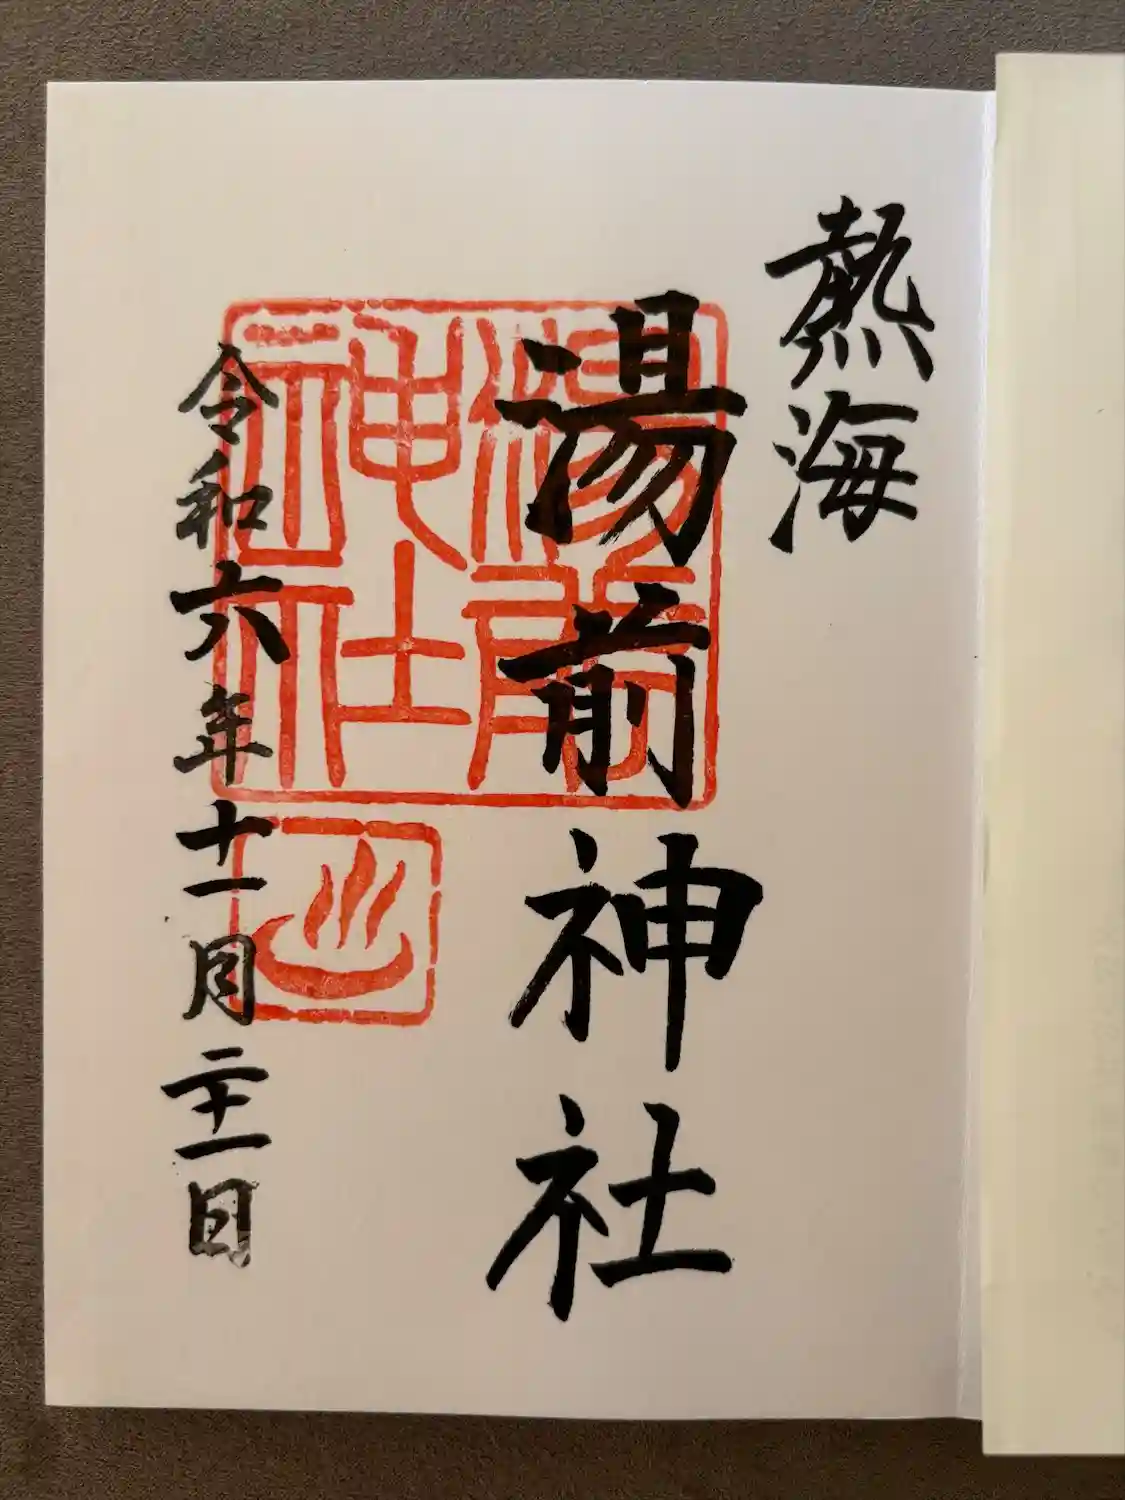 熱海
湯前神社
令和六年十一月二十一日
湯前
神社